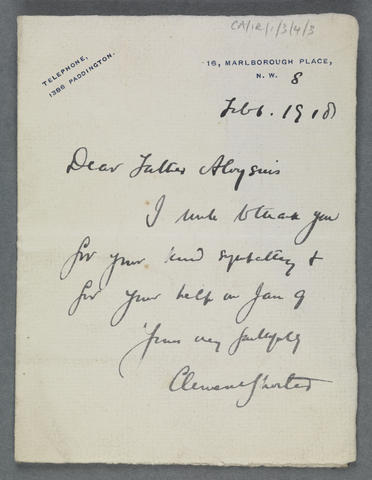 CA/IR/1/3/4/3
TELEPHONE,
1386 PADDINGTON.
16, MARLBOROUGH PLACE,
N.W. 8
Feb. 1918
Dear Father Aloysius
I write to thank you
for your kind sympathy &
for your help on Jan 9
Yours very faithfully
Clement Shorter